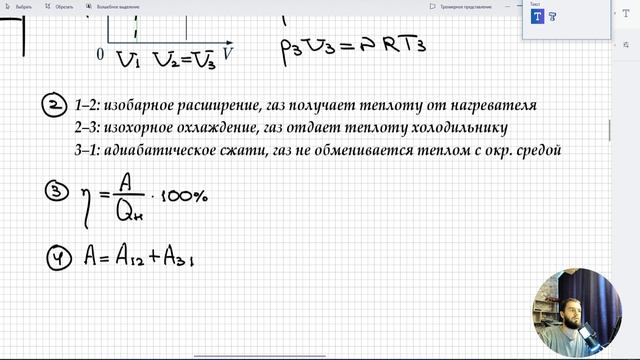 Выбрать Обрезать Волшебное выделение Трехмерное представление
Текст
T T
0 V₁ V₂=V₃ V
p₃V₃=νRT₃
2 1–2: изобарное расширение, газ получает теплоту от нагревателя
2–3: изохорное охлаждение, газ отдает теплоту холодильнику
3–1: адиабатическое сжати, газ не обменивается теплом с окр. средой
3 η = A/Qн · 100%
4 A = A₁₂ + A₃₁